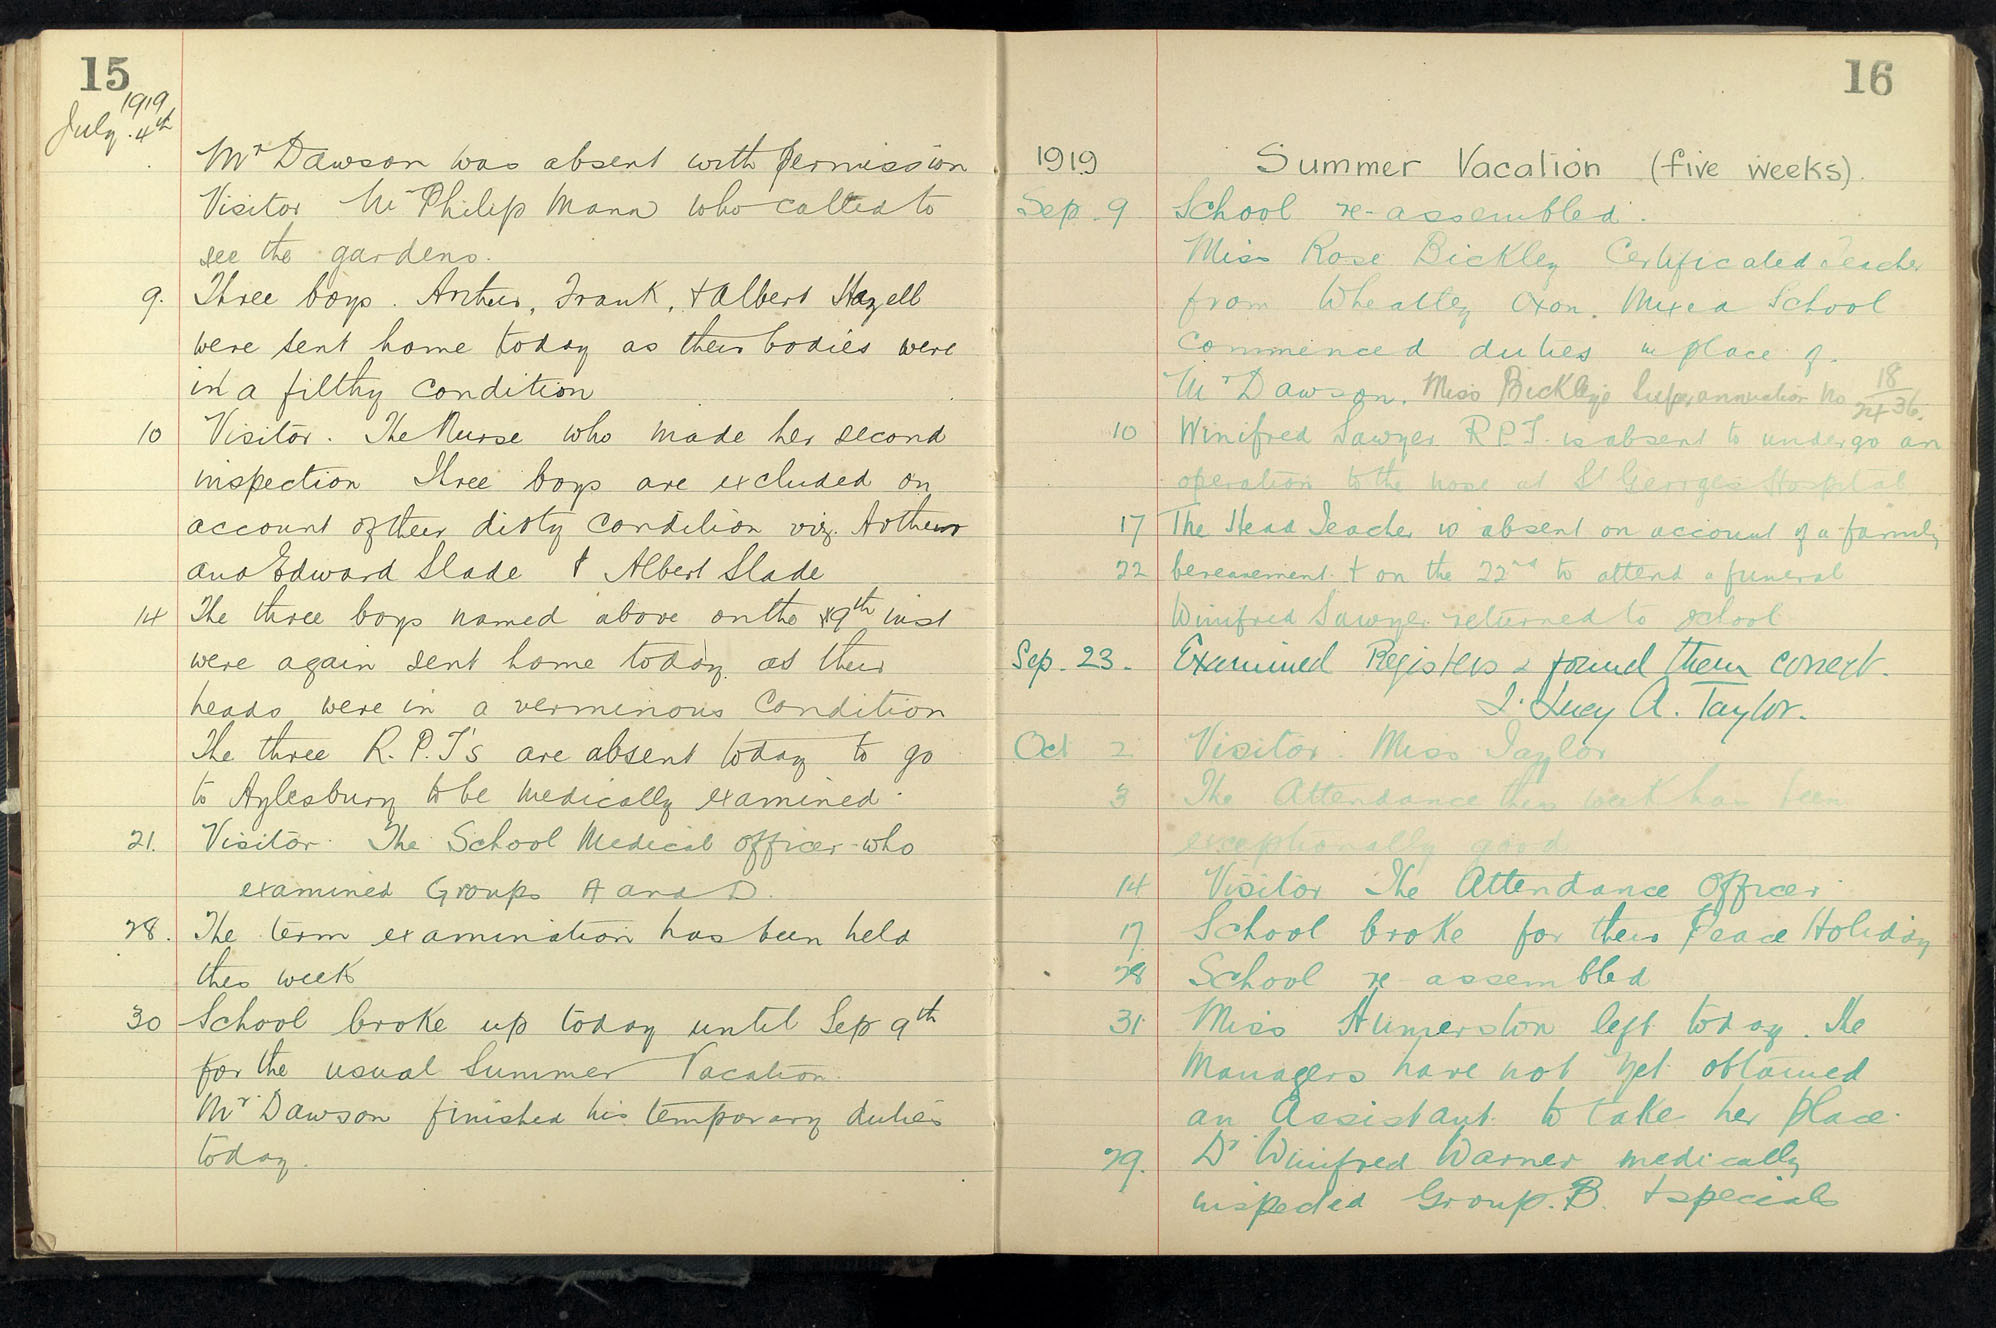 15
1919
July. 4th
Mr Dawson was absent with permission
Visitor Mr Philip Mann who called to
see the gardens.
9. Three boys. Arthur, Frank, & Albert Hazell
were sent home today as their bodies were
in a filthy condition
10 Visitor. The Nurse who made her second
inspection Three boys are excluded on
account of their dirty condition viz. Arthur
and Edward Slade & Albert Slade
14 The three boys named above on the 9th inst
were again sent home today as their
heads were in a verminous condition
The three R.P.T's are absent today to go
to Aylesbury to be medically examined.
21. Visitor. The School Medical Officer who
examined Groups A and D.
28. The term examination has been held
this week
30 School broke up today until Sep 9th
for the usual Summer Vacation.
Mr Dawson finished his temporary duties
today.
16
1919 Summer Vacation (five weeks).
Sep. 9 School re-assembled.
Miss Rose Bickley Certificated Teacher
from Wheatley Oxon. Mixed School
commenced duties in place of
Mr Dawson. Miss Bickley's Superannuation No 18/2436.
10 Winifred Sawyer R.P.T. is absent to undergo an
operation to the nose at St Georges Hospital
17 The Head Teacher is absent on account of a family
22 bereavement & on the 22nd to attend a funeral
Winifred Sawyer returned to school
Sep. 23. Examined Registers & found them correct.
Lucy A. Taylor.
Oct 2 Visitor Miss Taylor
3 The Attendance this week has been
exceptionally good
14 Visitor The Attendance Officer
17 School broke for their Peace Holiday
28 School re assembled
31 Miss Humerston left today. The
Managers have not yet obtained
an Assistant to take her place.
29. Dr Winifred Warner medically
inspected Group. B. & specials